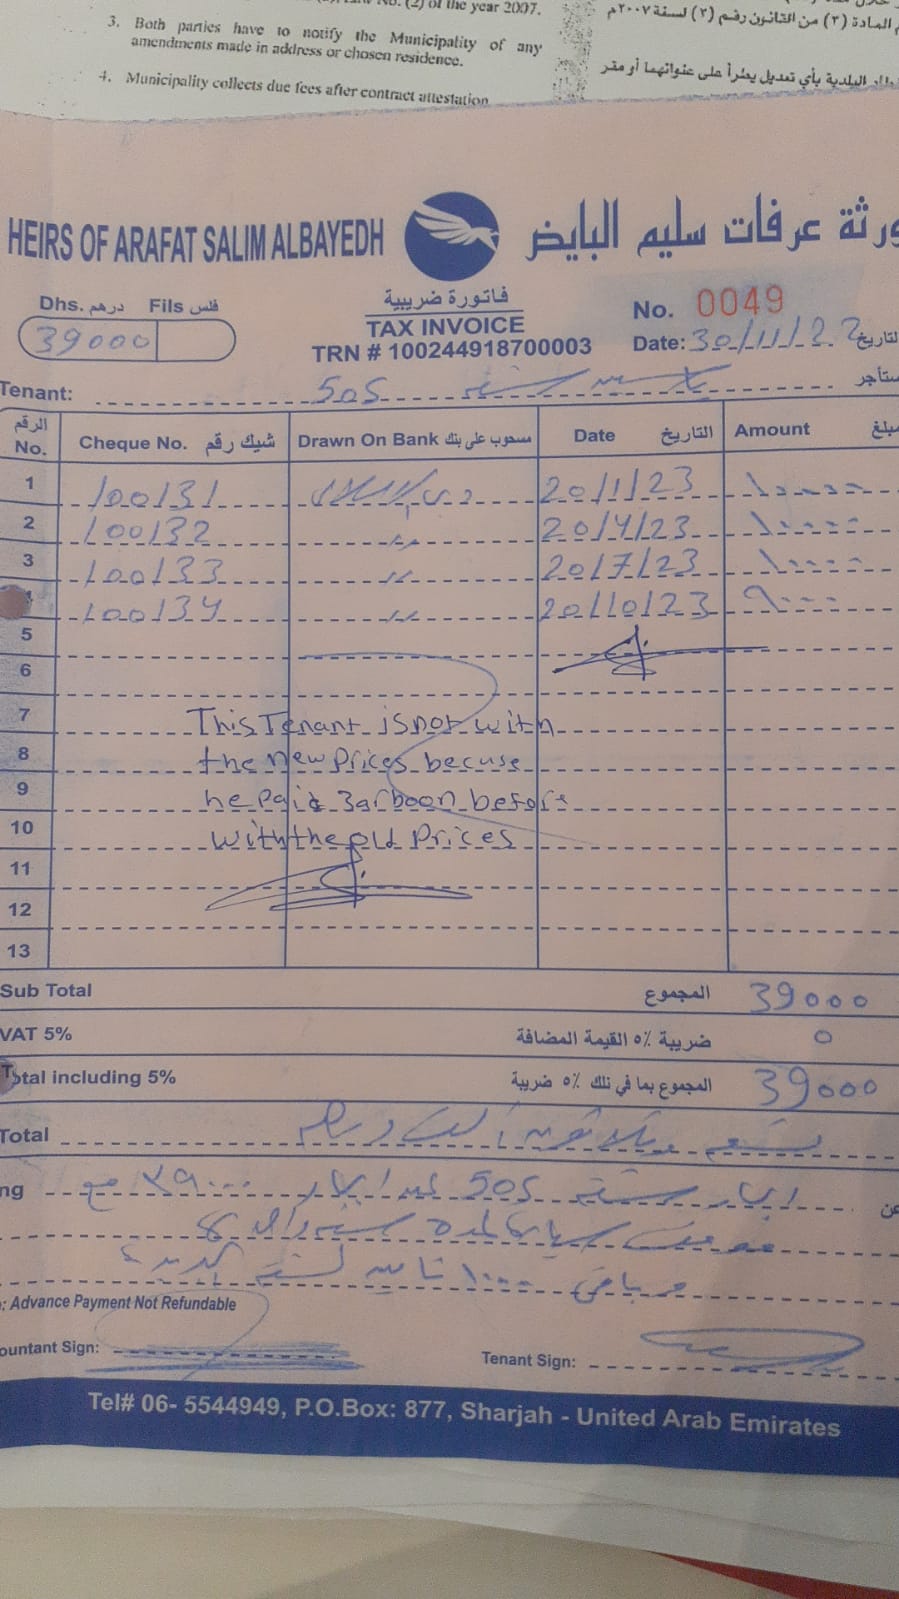 No. (2) of the year 2007.
المادة (٢) من القانون رقم (٢) لسنة ٢٠٠٧م
3. Both parties have to notify the Municipality of any
amendments made in address or chosen residence.
البلدية بأي تعديل يطرأ على عنوانهما أو مقر
4. Municipality collects due fees after contract attestation
HEIRS OF ARAFAT SALIM ALBAYEDH
ورثة عرفات سليم البايض
Dhs. درهم Fils فلس
39000
فاتورة ضريبية
TAX INVOICE
TRN # 100244918700003
No. 0049
Date: 30/11/22 التاريخ
Tenant: 505 ستأجر
الرقم No. Cheque No. شيك رقم Drawn On Bank مسحوب على بنك Date التاريخ Amount مبلغ
1 100131 دبي الاسلامي 20/1/23 ١٠٠٠٠
2 100132 " 20/4/23 ١٠٠٠٠
3 100133 " 20/7/23 ١٠٠٠٠
4 100134 " 20/10/23 ٩٠٠٠
5
6
7 This Tenant is not with
8 the new prices becuse
9 he paid 3arboon before
10 with the old prices
11
12
13
Sub Total المجموع 39000
VAT 5% ضريبة ٥٪ القيمة المضافة 0
Total including 5% المجموع بما في ذلك ٥٪ ضريبة 39000
Total تسعة وثلاثون ألف درهم
ng ايجار شقة 505 ٣٩٠٠٠ مع عن
لمدة سنة
١٠٠٠ تامين
: Advance Payment Not Refundable
ountant Sign:
Tenant Sign:
Tel# 06- 5544949, P.O.Box: 877, Sharjah - United Arab Emirates